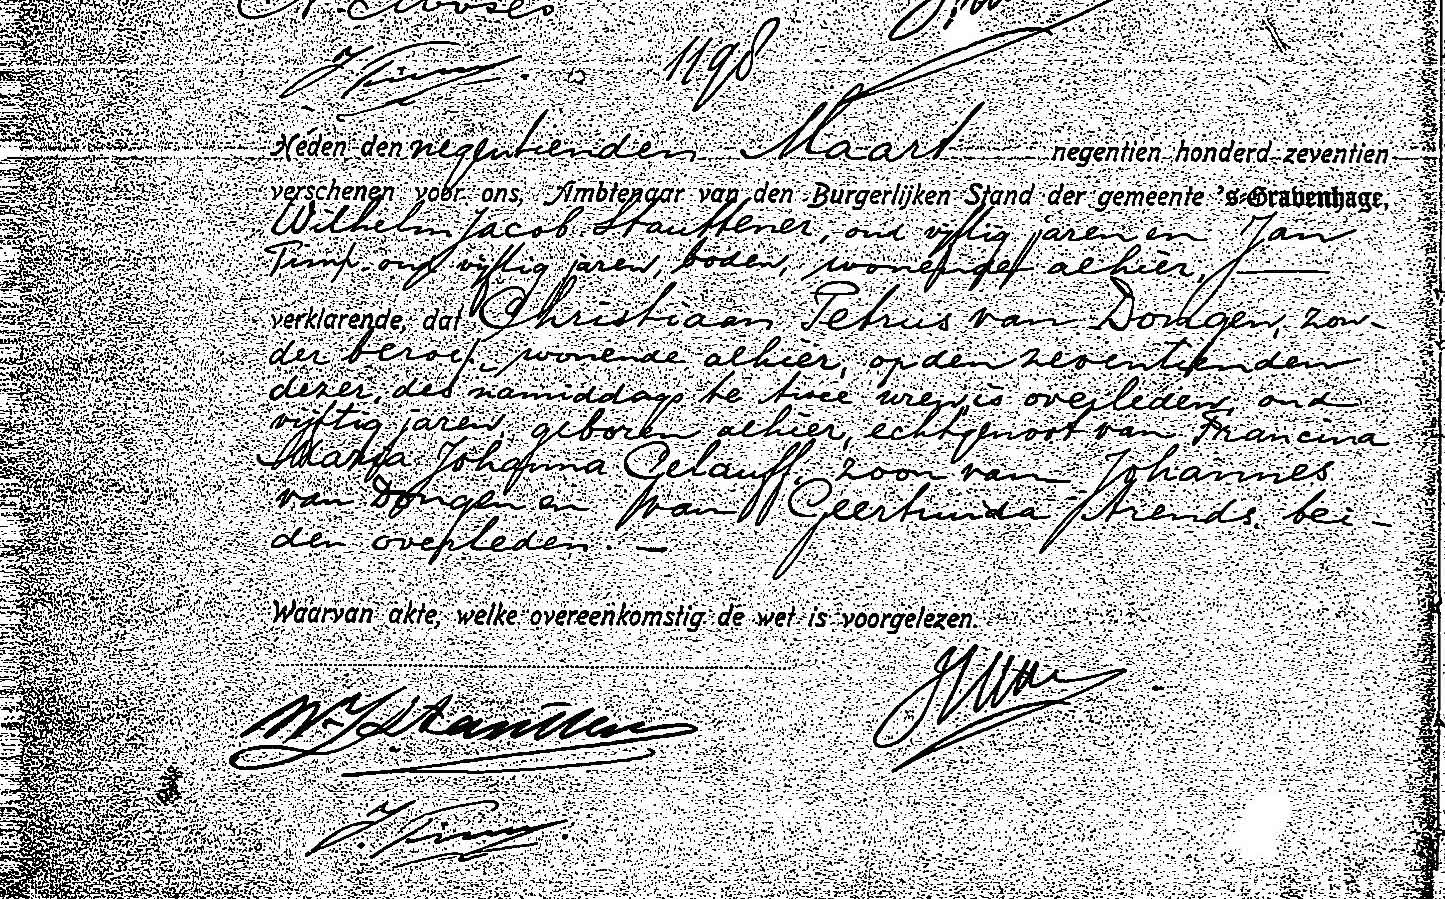 1198
Heden den negentienden Maart negentien honderd zeventien
verschenen voor ons, Ambtenaar van den Burgerlijken Stand der gemeente 's-Gravenhage,
Wilhelm Jacob Stauttener, oud vijftig jaren en Jan
Timp oud vijftig jaren, boden, wonende alhier,
verklarende, dat Christiaan Petrus van Dongen, zon-
der beroep, wonende alhier, op den zeventienden
dezer, des namiddags te twee uren, is overleden, oud
vijftig jaren, geboren alhier, echtgenoot van Francina
Maria Johanna Gelauff, zoon van Johannes
van Dongen en van Geertruida Arends, bei-
den overleden. —
Waarvan akte, welke overeenkomstig de wet is voorgelezen.